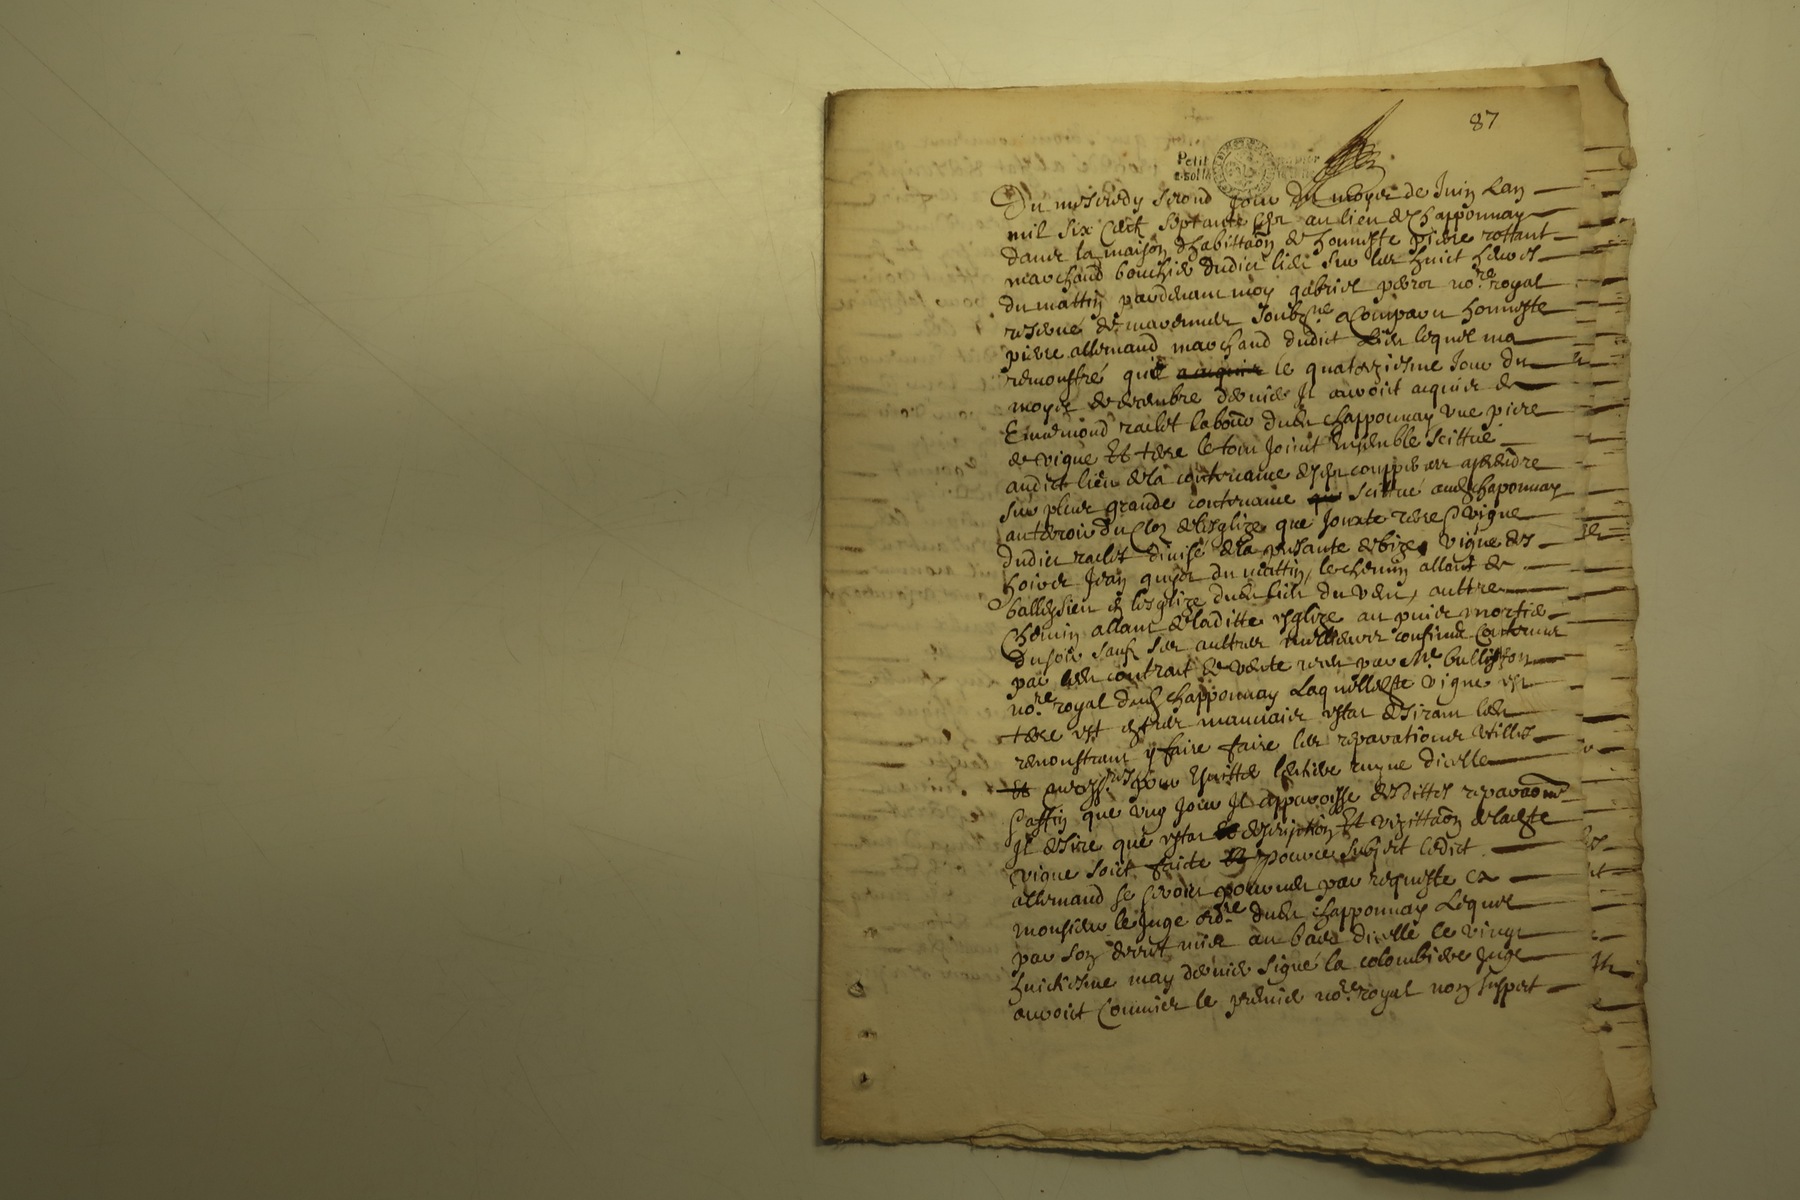 87
Petit
Du mescredy second jour du moys de Juin Lan
mil six cent septante au lieu de Chapponnay
dans la maison dhabittaõn de honneste pierre rottant
marchand bouchier dudict lieu sur les huict heures
du mattin pardevant moy gabriel no.re royal
reservé de marennes soubz.né a Comparu honneste
pierre allemand marchand dudict lieu lequel ma
remonstré quil le quatorziesme Jour du
moys de decembre dernier Il auroit acquis de
Einnemond raclet labour dud Chapponnay une piece
de vigne Et terre le tout Joint Ensemble scittué
audict lieu de la contenance a prendre
sur plus grande contenance scittué aud Chaponnay
au terroir du Clos de lesglize que Jouxte terre vigne
dudict raclet divise de la presante de bize, vigne des
hoirs Jean du mattin, le chemin allant de
a lesglize dud lieu du vent, auttre
Chemin allant de laditte esglize au puis mortier
du soir sauf ses auttres meilleurs confins Contenus
par led contrant de vente receu par Me
no.re royal dud Chapponnay Laquelle vigne et
terre est en tres mauvais estat desirant led
remonstrant y faire faire les reparations utilles
Et pour Esvitter lentiere ruyne dicelle
Et affin que ung jour Il apparoisse desdittes reparaõns
Il desire que estat description Et vizittaõn de ladte
vigne soict faicte pource subject ledict
allemand se seroit pourveu par requeste a
monsieur le Juge ord.re dud Chapponnay Lequel
par son decret mis au bas dicelle le vingt
huictiesme may dernier signé la colombiere Juge
auroict Commis le premier no.re royal non suspect